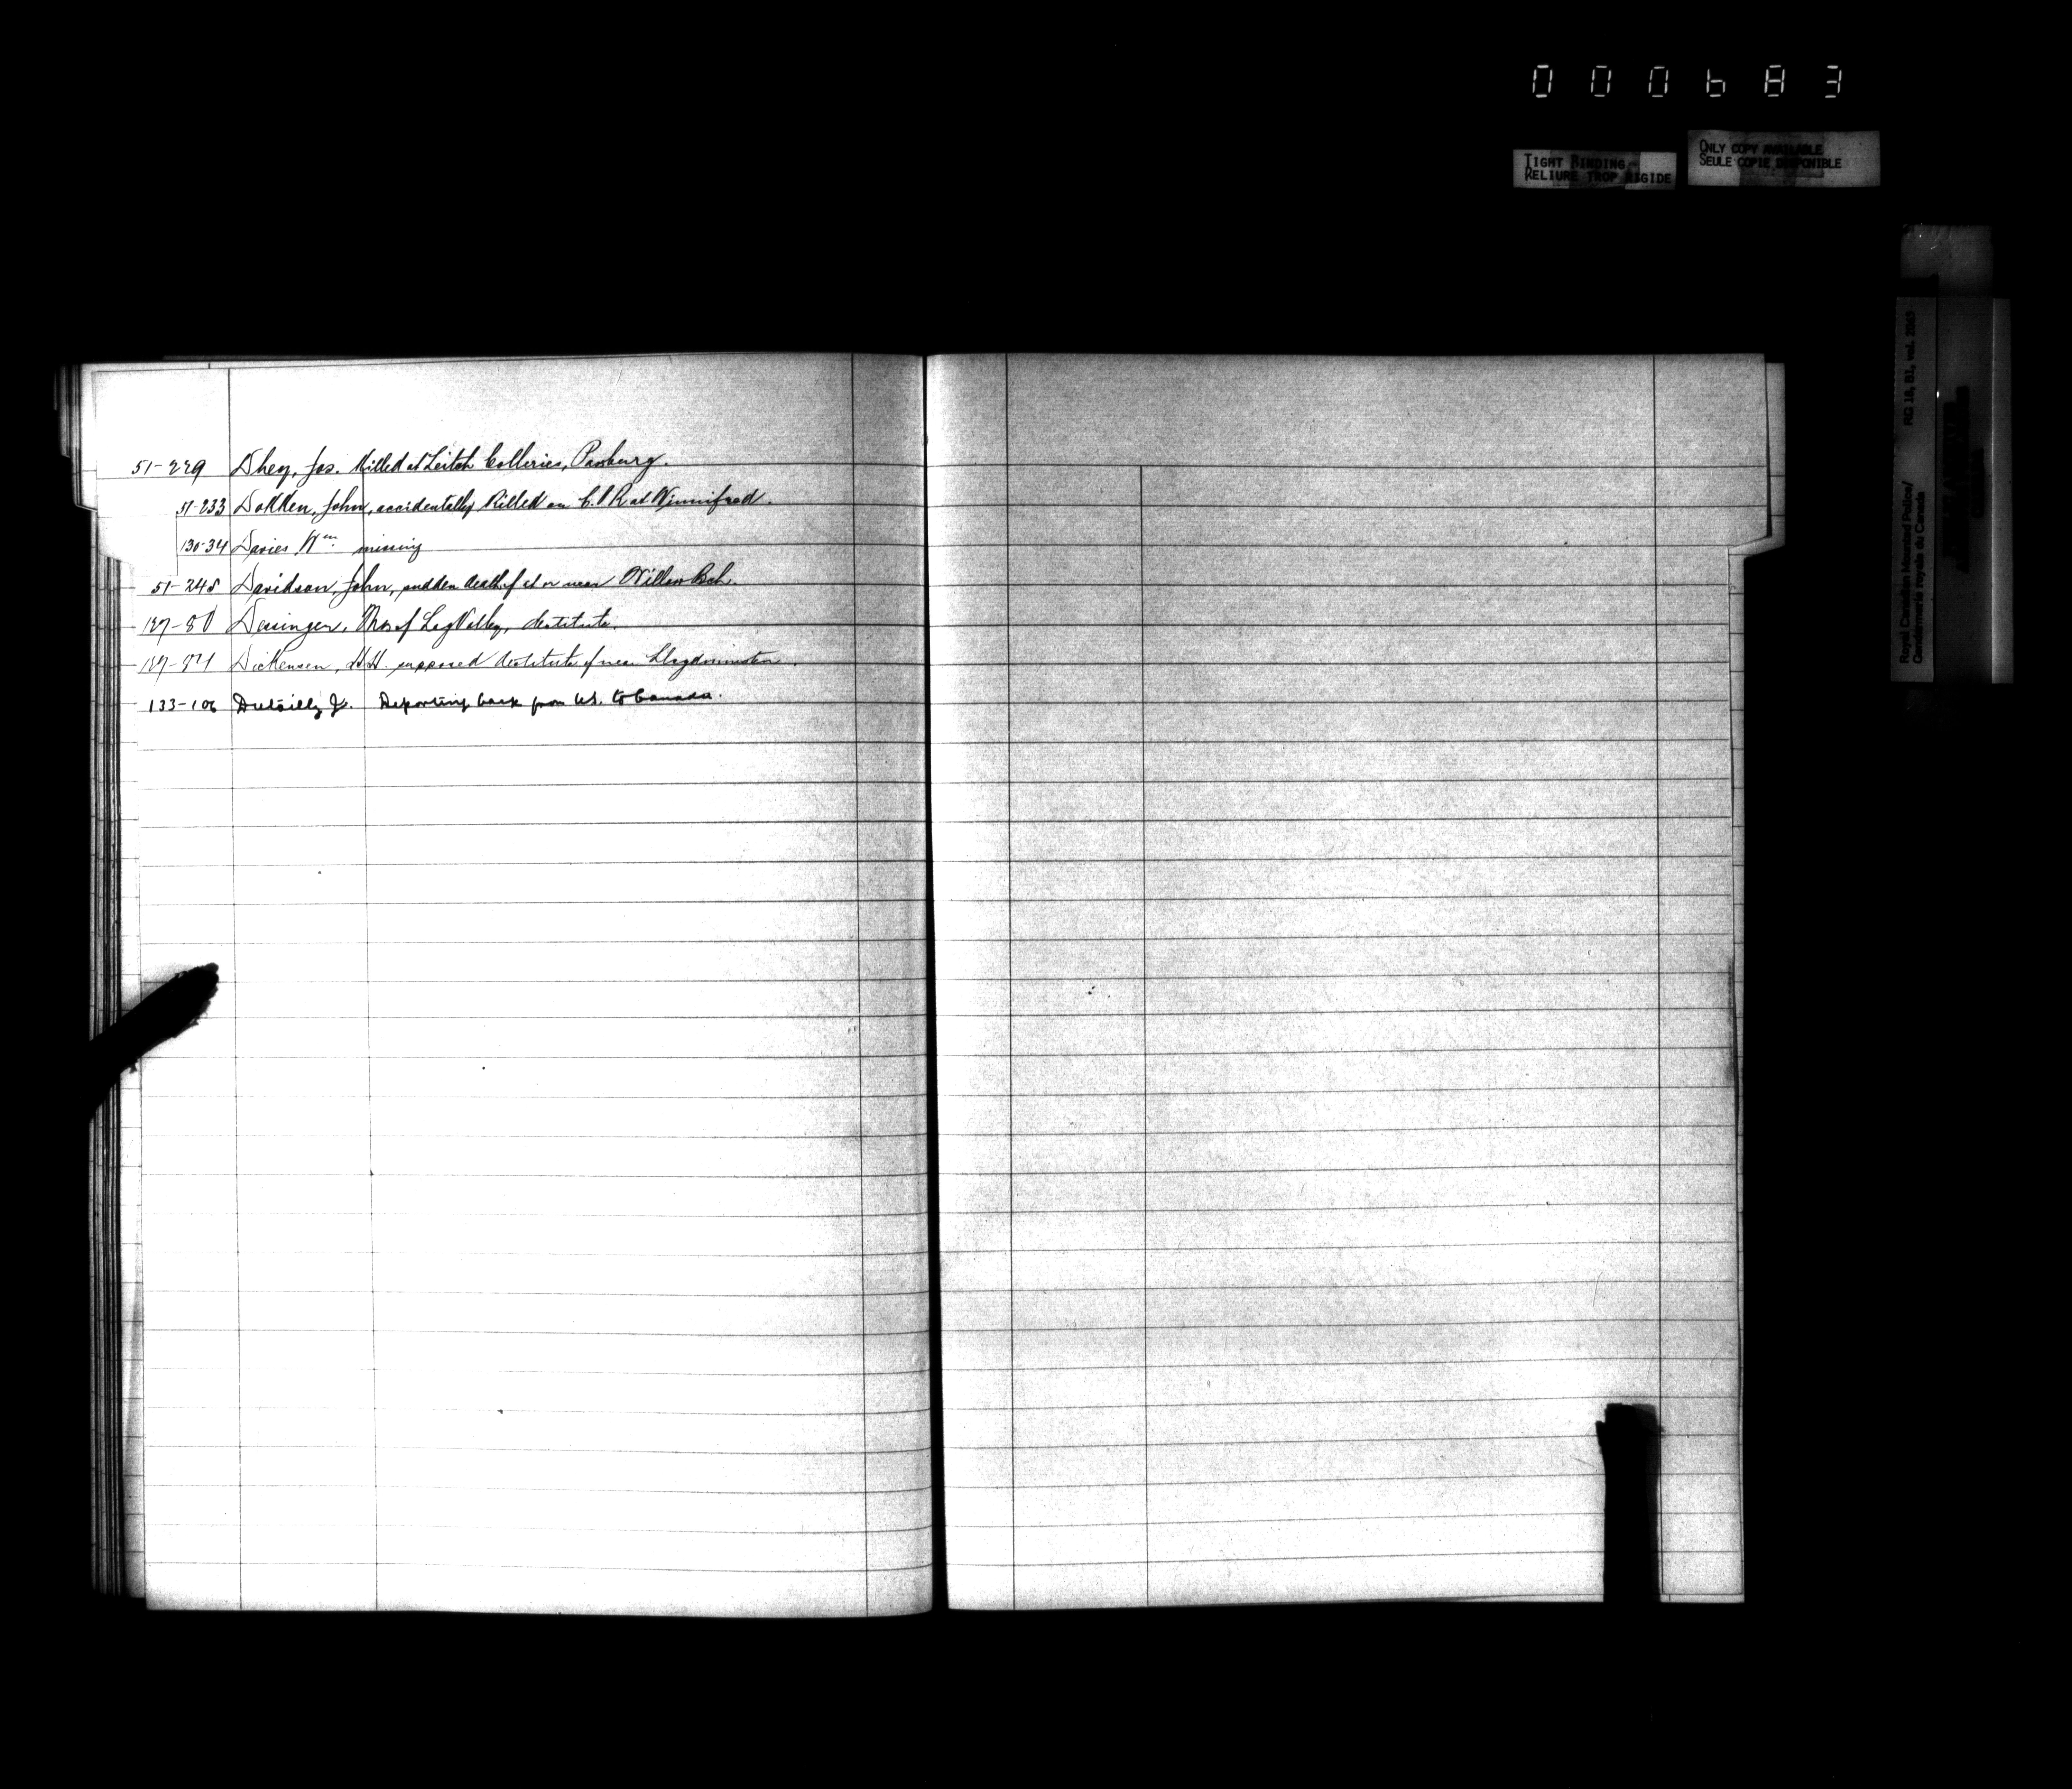 000683
TIGHT BINDING
RELIURE TROP RIGIDE
ONLY COPY AVAILABLE
SEULE COPIE DISPONIBLE
Royal Canadian Mounted Police/ RG 18, B1, vol. 2063
Gendarmerie royale du Canada
51-229 Dhey, Jos. Killed at Leitch Colleries, Pasburg.
51-233 Dokken, John, accidentally killed on C.P.R at Winnifred.
130-34 Davies Wm missing
51-248 Davidson, John, sudden death of at or near Willow Bch.
127-80 Dessinger, Mrs of Log Valley, destitute.
Dickenson, H.H. supposed destitute of near Lloydminster.
133-106 Dutoilly Jr. Deporting back from U.S. to Canada.